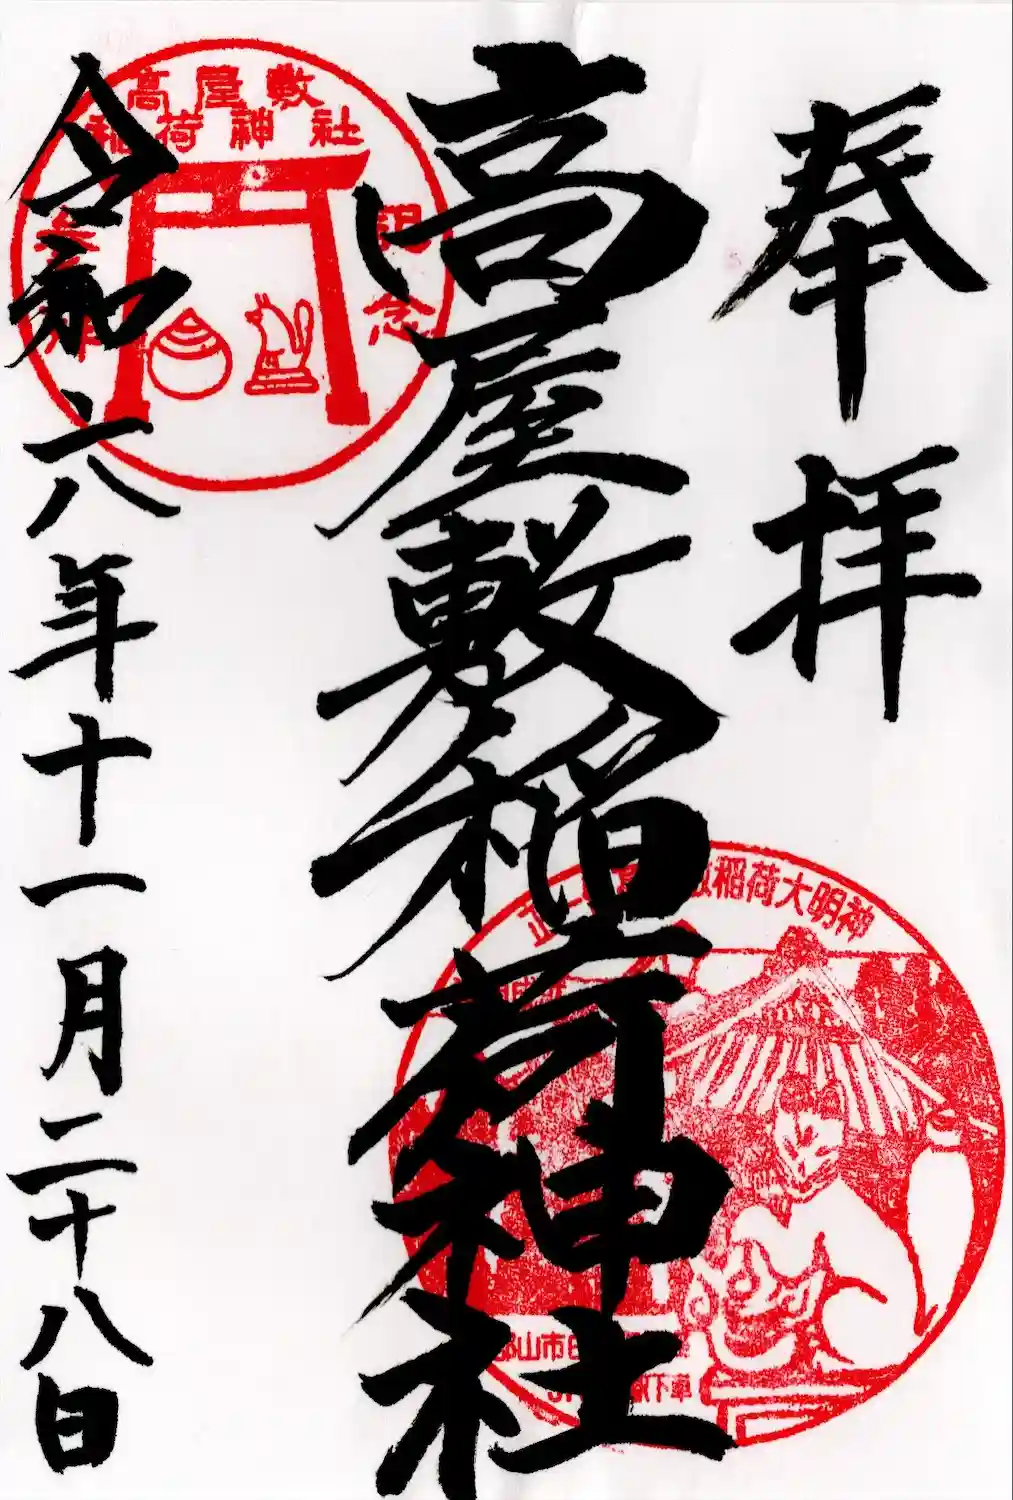 奉拝
高屋敷稲荷神社
令和六年十一月二十八日
高屋敷
稲荷神社
記念
正一
稲荷大明神
山市
下車